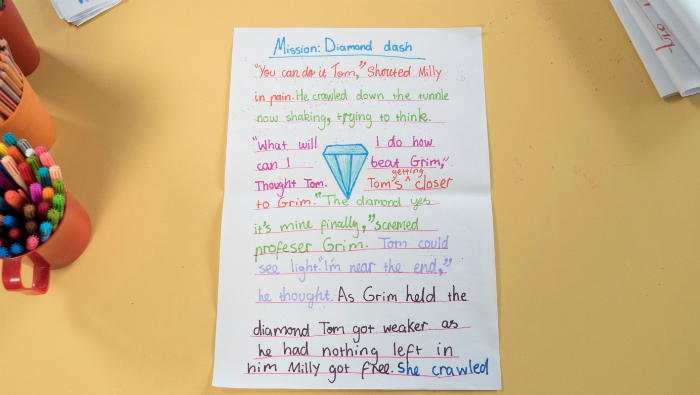 Mission: Diamond dash
"You can do it Tom," Shouted Milly
in pain. He crawled down the tunnle
now shaking, trying to think.
"What will I do how
can I beat Grim,"
Thought Tom. Tom's getting closer
to Grim. "The diamond yes
it's mine finally," screamed
profeser Grim. Tom could
see light. "I'm near the end,"
he thought. As Grim held the
diamond Tom got weaker as
he had nothing left in
him Milly got free. She crawled